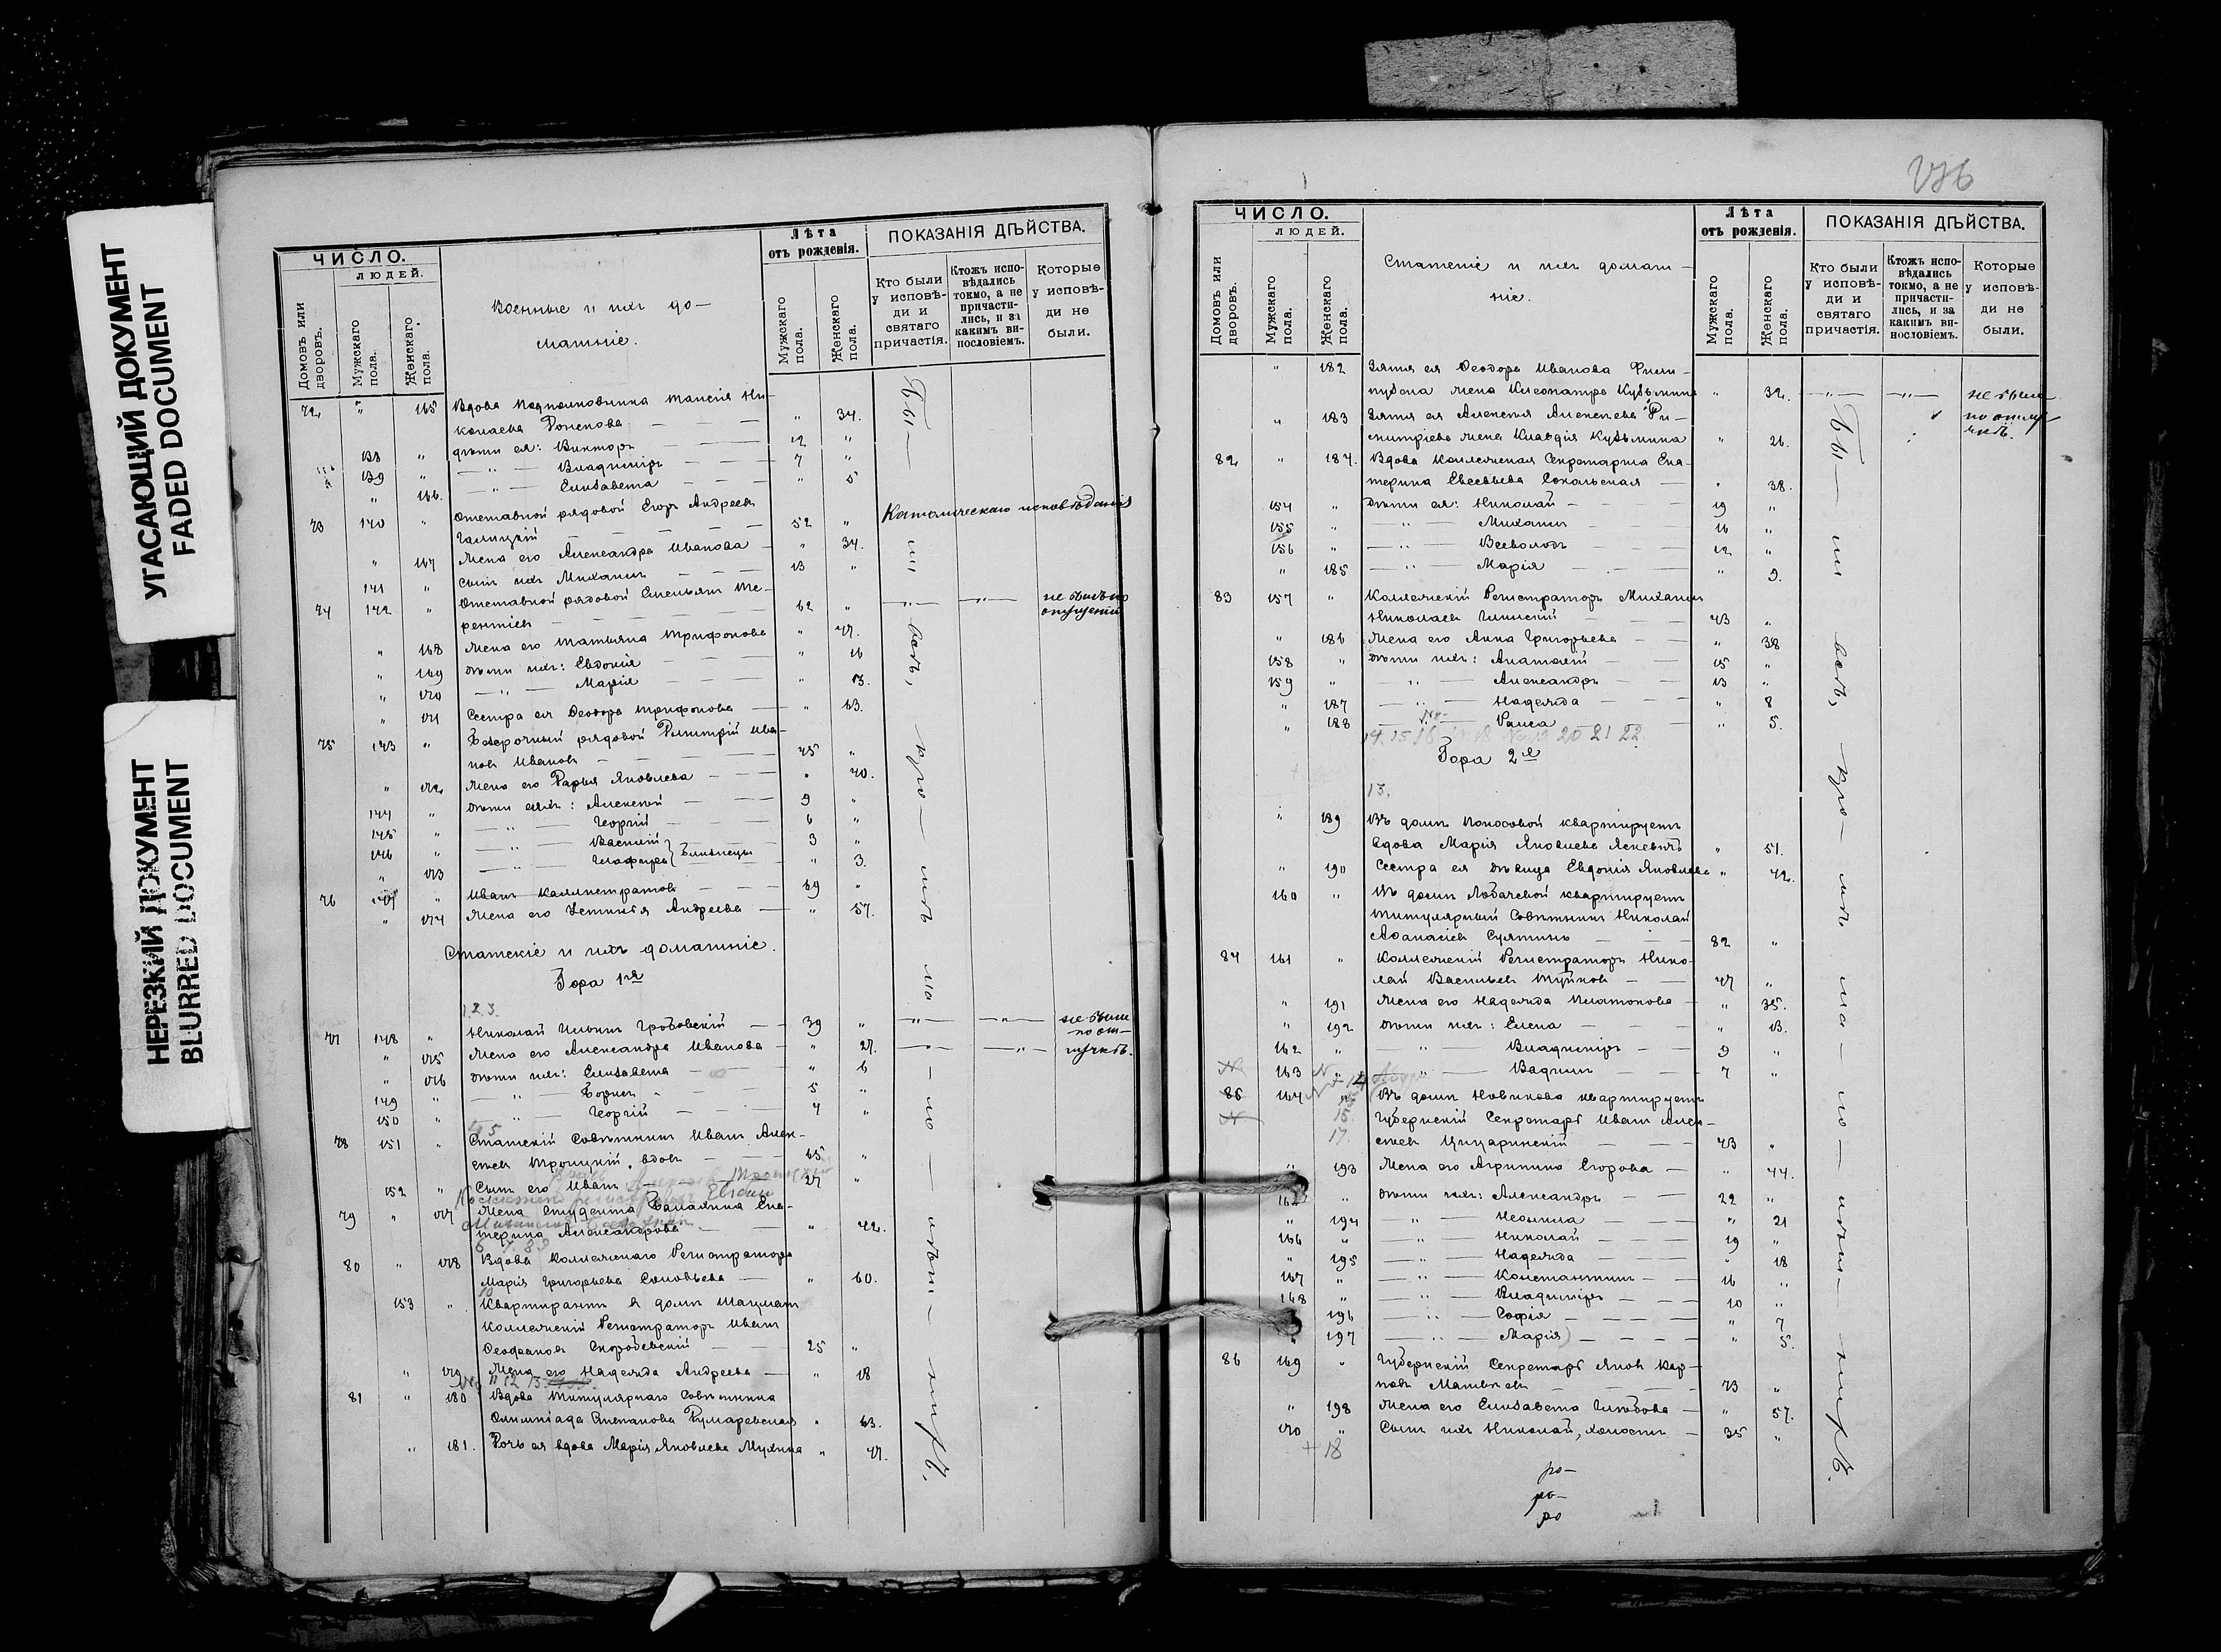 УГАСАЮЩИЙ ДОКУМЕНТ
FADED DOCUMENT
НЕРЕЗКИЙ ДОКУМЕНТ
BLURRED DOCUMENT
ЧИСЛО.
ЛЮДЕЙ.
Домовъ или дворовъ.
Мужскаго пола.
Женскаго пола.
Военные и ихъ до-
машніе.
Лѣта
отъ рожденія.
Мужскаго пола.
Женскаго пола.
ПОКАЗАНІЯ ДѢЙСТВА.
Кто были у исповѣ-ди и святаго причастія.
Ктожъ испо-вѣдались токмо, а не причасти-лись, и за какимъ ви-нословіемъ.
Которые у исповѣ-ди не были.
72 " 165 Вдова Подполковника Таисія Ни-
колаева " 34.
138 " дѣти ея: Викторъ 12 "
139 " — " — Владиміръ 7 "
" 166. — " — Елисавета " 5
73 140 " Отставной рядовой Егоръ Андреевъ
Галицкій 52 " Католическаго исповѣданія
" 167 Жена его Александра Иванова " 34.
141 " Сынъ ихъ Михаилъ 13 "
74 142 " Отставной рядовой Емельянъ Те-
рентіевъ 62 " — " — — " — не былъ по
опущенію
" 168 Жена его Татьяна Трифонова " 47.
" 169 Дѣти ихъ: Евдокія " 16
" 170 — " — Марія " 13.
" 171 Сестра ея Ѳеодора Трифонова " 63.
75 143 " Безсрочный рядовой Димитрій Ива-
новъ Ивановъ 45 "
" 172 Жена его Дарья Яковлева " 40.
144 " Дѣти ихъ: Алексѣй 9 "
145 " — " — Георгій 6 "
146 " — " — Василій 3 "
" 173 — " — Глафира } близнецы " 3.
76 147 " Иванъ Каллистратовъ 69 "
" 174 Жена его Устинья Андреева " 57.
Статскіе и ихъ домашніе.
Гора 1я
1. 2. 3.
77 148 " Николай Ильинъ Гробовскій 39 " — " — — " — не были
по от-
" 175 Жена его Александра Иванова " 27. — " — — " — лучкѣ.
" 176 Дѣти ихъ: Елисавета " 6
149 " — " — Борисъ 5 "
150 " — " — Георгій 4 "
4, 5
78 151 " Статскій Совѣтникъ Иванъ Алек-
сѣевъ Троицкій, вдовъ 65 "
152 " Сынъ его Иванъ 27 "
79 " 177 Жена Студента Балахина Ека-
терина Александрова " 42.
80 " 178 Вдова Коллежскаго Регистратора
Марія Григорьева Соловьева " 60.
10
153 " Квартирантъ в домѣ Шацкихъ
Коллежскій Регистраторъ Иванъ
Ѳеофановъ Скородевскій 25 "
" 179 Жена его Надежда Андреева " 18
81 " 180 Вдова Титулярнаго Совѣтника
Олимпіада Степанова Румаревская " 63.
" 181. Дочь ея вдова Марія Яковлева Мухина " 47.
Бы — ли всѣ, кро — мѣ
176
ЧИСЛО.
ЛЮДЕЙ.
Домовъ или дворовъ.
Мужскаго пола.
Женскаго пола.
Статскіе и ихъ домаш-
ніе.
Лѣта
отъ рожденія.
Мужскаго пола.
Женскаго пола.
ПОКАЗАНІЯ ДѢЙСТВА.
Кто были у исповѣ-ди и святаго причастія.
Ктожъ испо-вѣдались токмо, а не причасти-лись, и за какимъ ви-нословіемъ.
Которые у исповѣ-ди не были.
" 182 Зятя ея Ѳеодора Иванова
жена Клеопатра Кузьмина " 32. — " — — " — не были
по отлу-
чкѣ.
" 183 Зятя ея Алексѣя Алексѣева Ди-
митріева жена Клавдія Кузьмина " 26.
82 " 184. Вдова Коллежскаго Секретаря Ека-
терина Евсевьева Сокольская " 38.
154 " Дѣти ея: Николай 19 "
155 " — " — Михаилъ 16 "
156 " — " — Всеволодъ 12 "
" 185 — " — Марія " 9.
83 157 " Коллежскій Регистраторъ Михаилъ
Николаевъ Глинскій 43 "
" 186 Жена его Анна Григорьева " 38
158 " Дѣти ихъ: Анатолій 15 "
159 " — " — Александръ 13 "
" 187 — " — Надежда " 8
" 188 — " — Раиса " 5.
14. 15 16 20 21 22.
Гора 2я
13.
" 189 Въ домѣ Колосовой квартируетъ
вдова Марія Яковлева Яскевичъ " 51.
" 190 Сестра ея дѣвица Евдокія Яковлева " 42.
160 " Въ домѣ Лобачевой квартируетъ
Титулярный Совѣтникъ Николай
Аѳанасіевъ Сулятинъ 82 "
84 161 " Коллежскій Регистраторъ Нико-
лай Васильевъ 47 "
" 191 Жена его Надежда Платонова " 35.
" 192 Дѣти ихъ: Елена " 13.
162 " — " — Владиміръ 9 "
163 " — " — Вадимъ 7 "
85 164 " Въ домѣ Новикова квартируетъ
Губернскій Секретарь Иванъ Алек-
сѣевъ Цицаринскій 43 "
" 193 Жена его Агрипина Егорова " 44.
165 " Дѣти ихъ: Александръ 22 "
" 194 — " — Неонила " 21
166 " — " — Николай 19 "
" 195 — " — Надежда " 18
167 " — " — Константинъ 16 "
168 " — " — Владиміръ 10 "
" 196 — " — Софія " 7
" 197 — " — Марія " 5.
86 169 " Губернскій Секретарь Яковъ Кар-
повъ Матвѣевъ 73 "
" 198 Жена его Елисавета Глѣбова " 57.
170 " Сынъ ихъ Николай, холостъ 35 "
+ 18
Бы — ли всѣ, кро — мѣ
ро-
ро-
ро